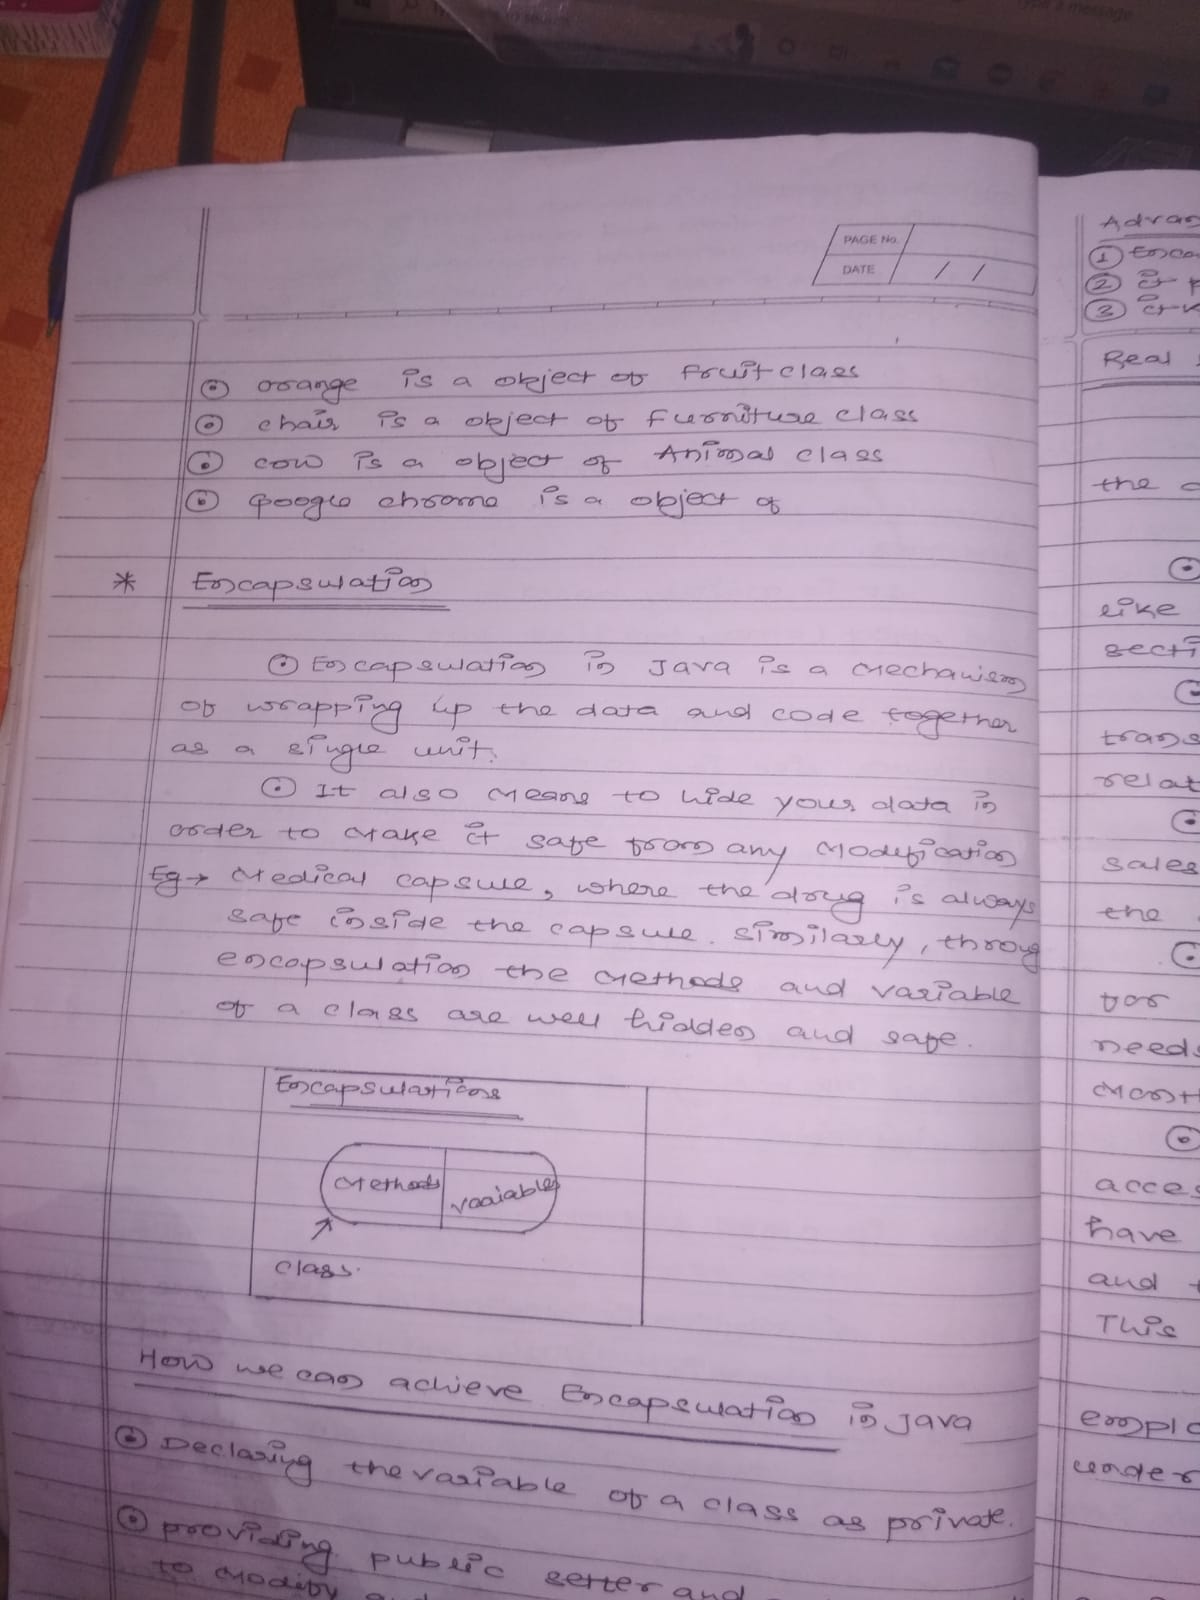 Type a message
PAGE No.
DATE / /
orange is a object of fruit class
chair is a object of furniture class
cow is a object of Animal class
Google chrome is a object of
* Encapsulation
Encapsulation in Java is a mechanism
of wrapping up the data and code together
as a single unit.
It also means to hide your data in
order to make it safe from any modification
Eg → Medical capsule, where the drug is always
safe inside the capsule. similarly, throug
encapsulation the methods and variable
of a class are well hidden and safe.
Encapsulations
Methods variables
class.
How we can achieve Encapsulation in Java
Declaring the variable of a class as private.
providing public setter and
to modify
Advan
1
2 it
3
Real
the
like
secti
trans
relat
sales
the
for
needs
Month
acces
have
and
This
emplo
under